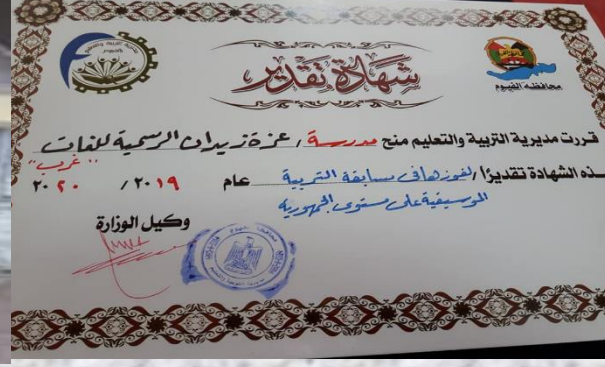 محافظة الفيوم
شهادة تقدير
قررت مديرية التربية والتعليم منح مدرسة / عزة زيدان الرسمية للغات
"غرب"
ـذه الشهادة تقديرًا / لفوزها فى مسابقة التربية عام ٢٠١٩ / ٢٠٢٠
الموسيقية على مستوى الجمهورية
وكيل الوزارة